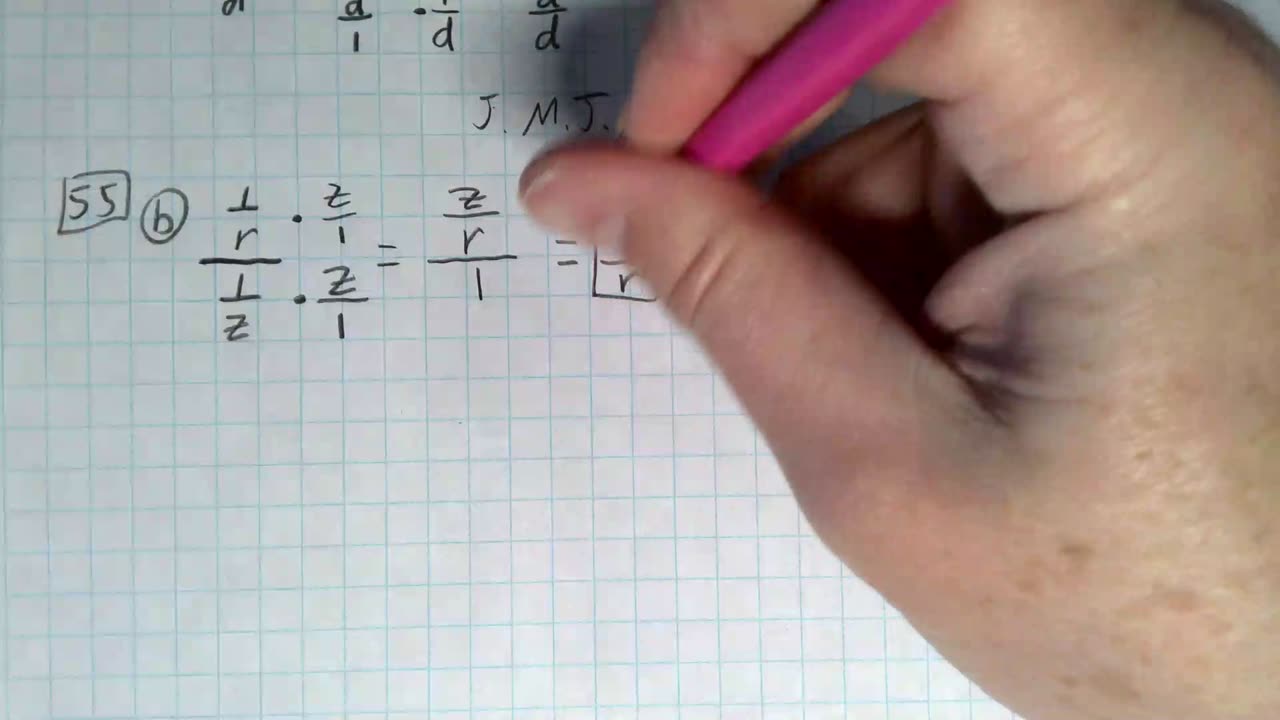 d/1 · 1/d d/d
J.M.J.
55 b (1/r · z/1)/(1/z · z/1) = (z/r)/1 = /r